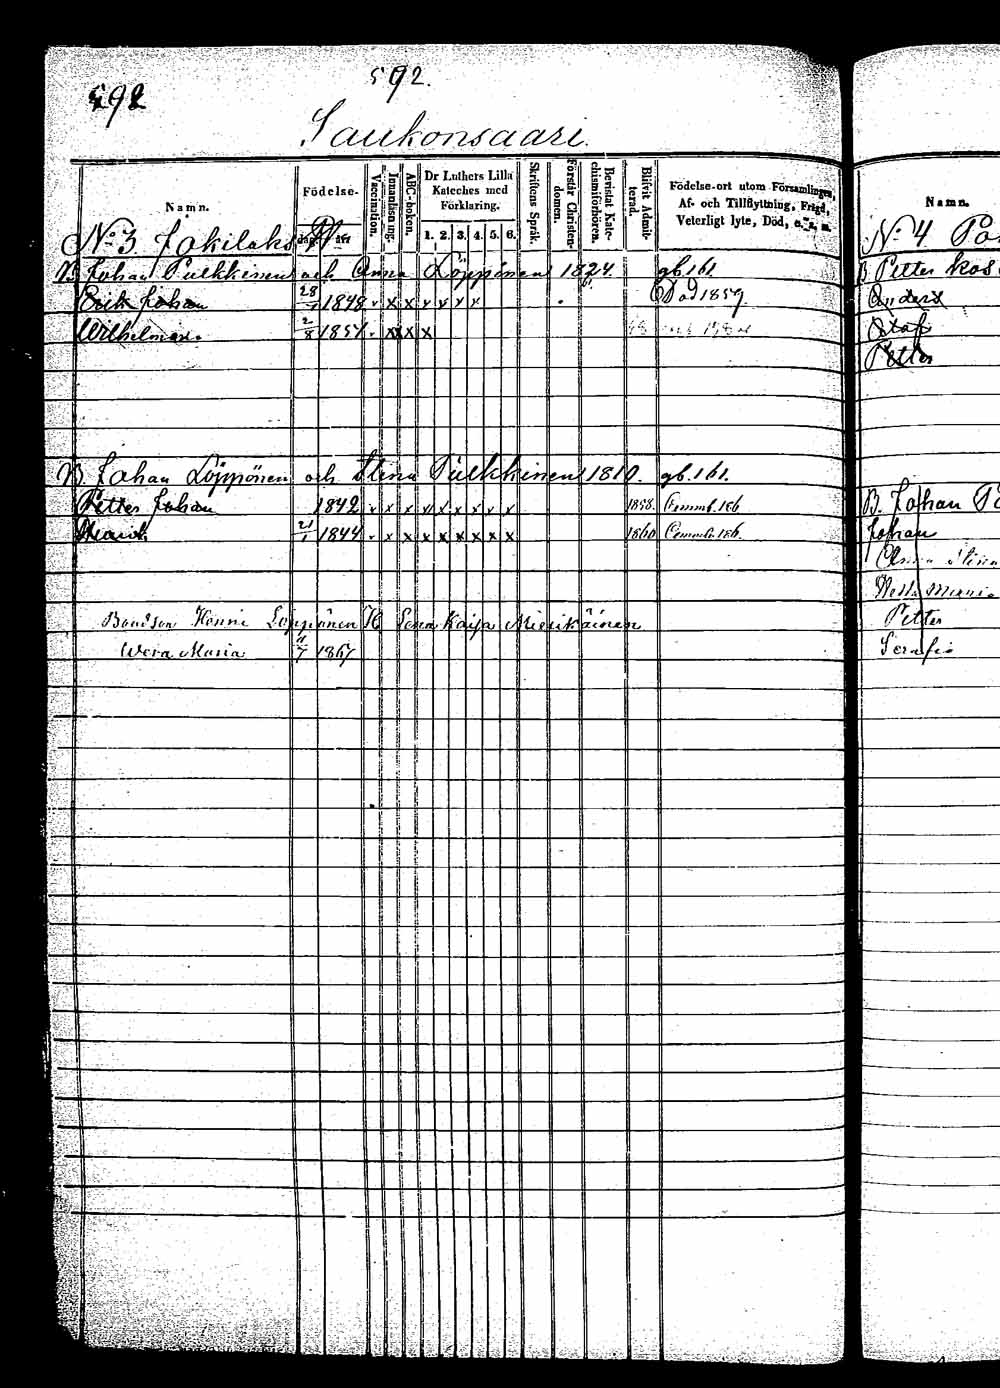 592
592.
Saukonsaari.
Namn.
Födelse-
dag. år
Vaccination.
Innanläsning.
ABC-boken.
Dr Luthers Lilla Kateches med Förklaring.
1. 2. 3. 4. 5. 6.
Skriftens Språk.
Förstår Christendomen.
Bevistat Katechismiförhören.
Blifvit Admitterad.
Födelse-ort utom Församlingen, Af- och Tillflyttning, Frägd, Veterligt lyte, Död, o. s. m.
No 3 Jokilaks
B Johan Pulkkinen och Anna Löppönen 1824. gb. 161.
Erik Johan 28 1848 x x x x x x Död 1859.
Wilhelmina. 2/8 1851 x x x x
B. Johan Löppönen och Stina Pulkkinen 1810. gb. 161.
Petter Johan 1842 x x x x x x x x x 1858. Commb. 186
21/1 1844 x x x x x x x x 1860 Commb. 186.
Bondson Henric Löppönen H Lena Kaisa Mieikäinen
Wera Maria 11/7 1867
Namn.
No 4
B Petter Kos
Anders
Staf
Petter
B. Johan
Johan
Anna Stina
Maria
Petter
Serafia